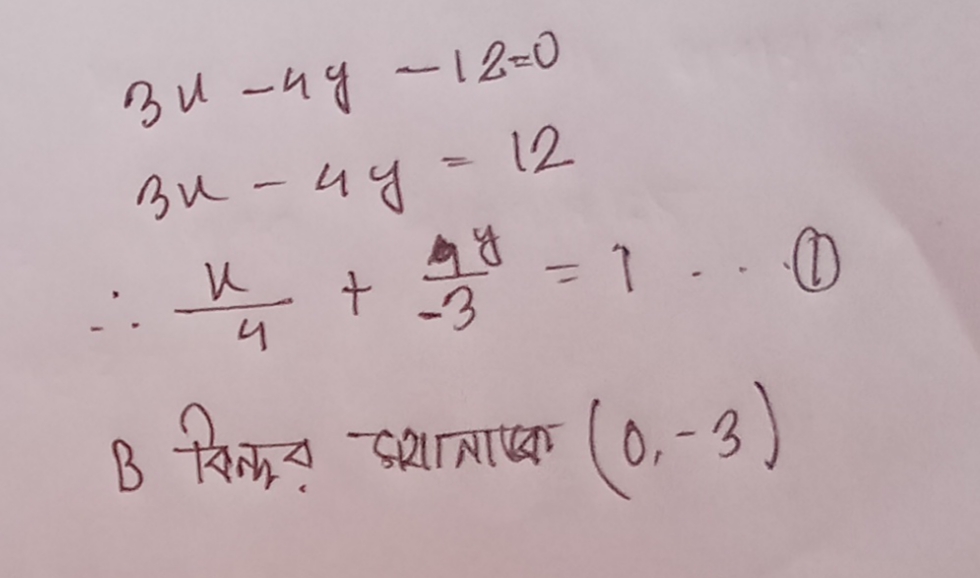 3x - 4y - 12=0
3x - 4y = 12
∴ x/4 + y/-3 = 1 ... ①
B বিন্দুর স্থানাঙ্ক (0,-3)